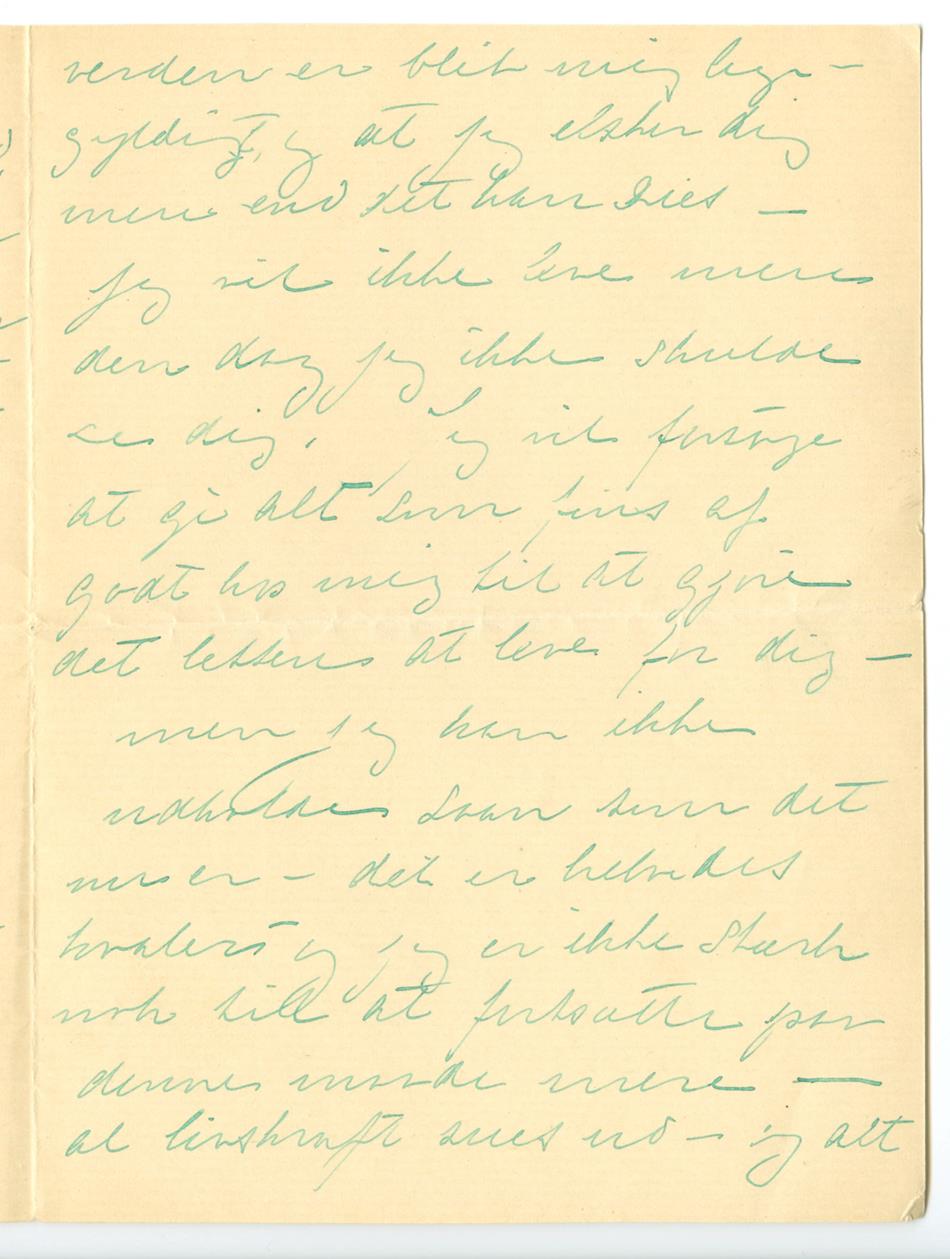 verden er blit mig lige-
gyldigt, og at jeg elsker dig
mere end det kan sies —
jeg vil ikke leve mere
den dag jeg ikke skulde
se dig. Jeg vil forsøge
at gi alt som fins af
godt hos mig til at gjøre
det lettere at leve for dig —
men jeg kan ikke
udholde saan som det
nu er – det er helvedes
kvaler og jeg er ikke stærk
nok till at fortsætte paa
denne maade mere —
al livskraft sues ud – og alt